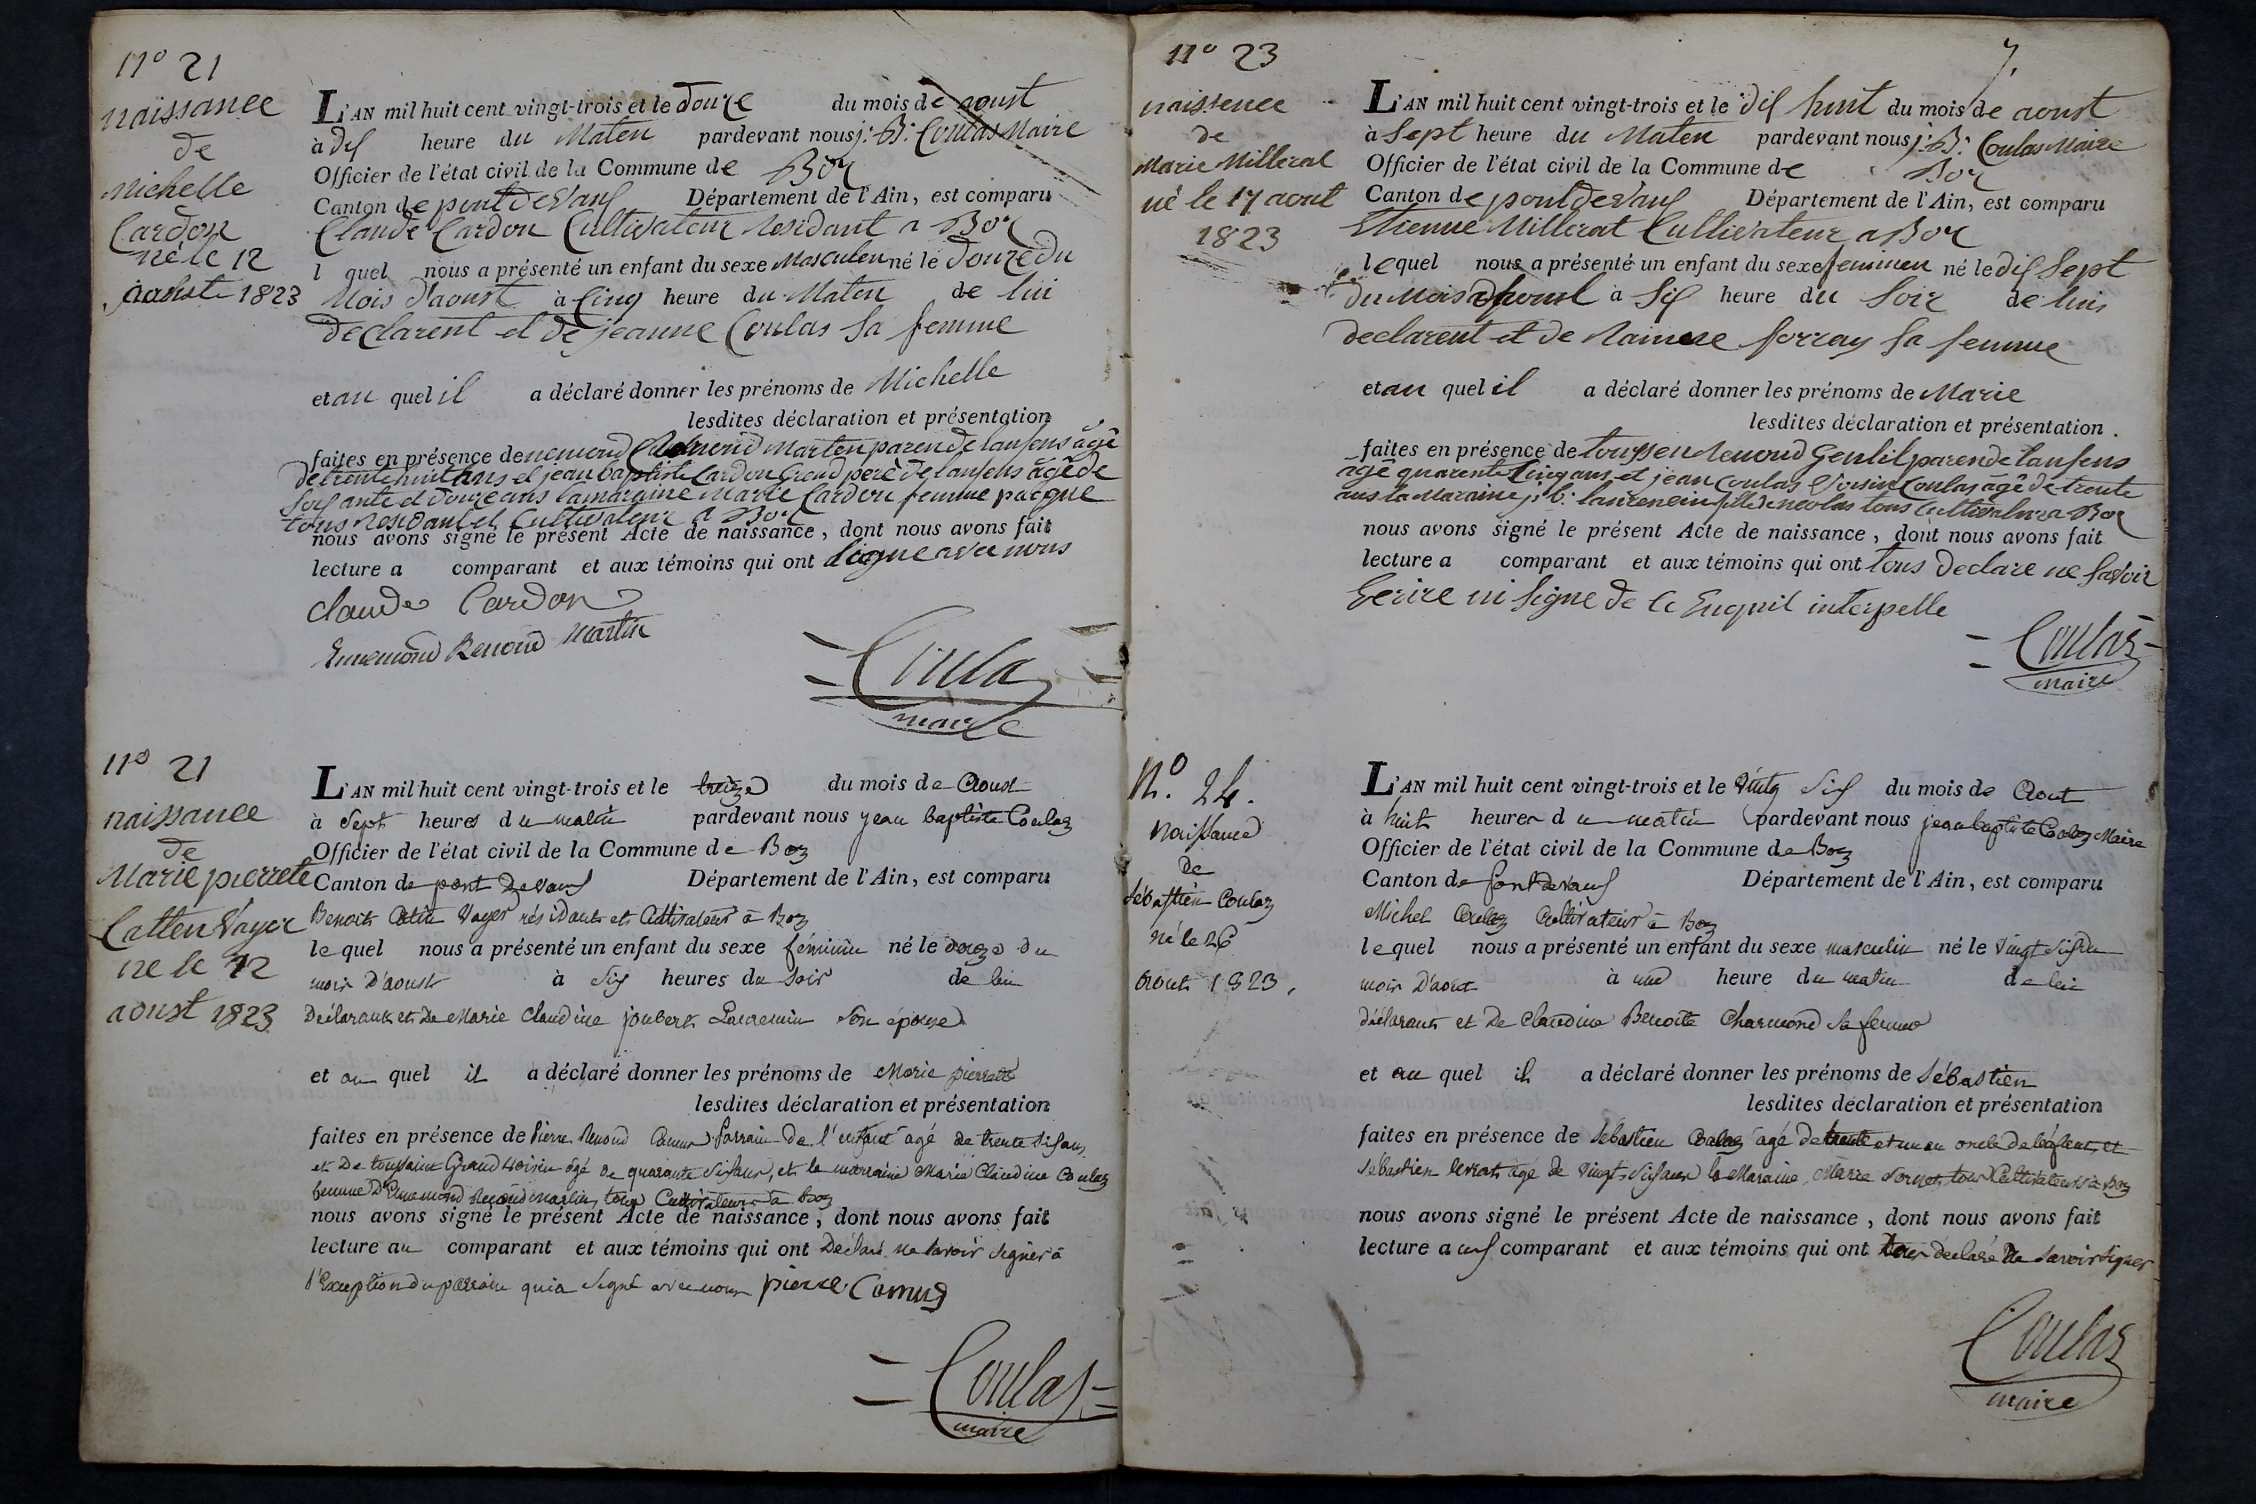 nº 21
naissance
de
Michelle
Cardon
né le 12
aoust 1823
L'AN mil huit cent vingt-trois et le douze du mois de aoust
à dix heure du Maten pardevant nous j: B: Coulas Maire
Officier de l'état civil de la Commune de Boz
Canton de pont de Vaux Département de l'Ain, est comparu
Claude Cardon Cultivateur residant a Boz
l quel nous a présenté un enfant du sexe Masculen né le douze du
Mois d'aoust à Cinq heure du Maten de lui
declarent et de jeanne Coulas sa femme
et au quel il a déclaré donner les prénoms de Michelle
lesdites déclaration et présentation
faites en présence de Renoud Marten paren de lanfens âgê
de trente huit ans et jean baptiste Cardon Grand pere de lanfens âgê de
soisante et douze ans la maraine Marie Cardon femme
tous residant et Cultivateur a Boz
nous avons signé le présent Acte de naissance, dont nous avons fait
lecture a comparant et aux témoins qui ont signe avec nous
Claude Cardon
Ennemond Renoud Martin
Coula
maire
nº 21
naissance
de
Marie pierrete
Catten Vayer
ne le 12
aoust 1823
L'AN mil huit cent vingt-trois et le treize du mois de Aoust
à Sept heures du matin pardevant nous jean baptiste Coulaz
Officier de l'état civil de la Commune de Boz
Canton de pont de vaux Département de l'Ain, est comparu
Benoit Catin Vayer résidant et Cultivateur à Boz
le quel nous a présenté un enfant du sexe féminin né le douze du
mois d'aoust à six heures du soir de lui
Déclarant et De Marie Claudine joubert Laurencin son épouse
et au quel il a déclaré donner les prénoms de Marie pierrette
lesdites déclaration et présentation
faites en présence de Pierre Renoud Camus Parrain de l'enfant agé de trente six ans
et De toussaint Grand voisin âgé de quarante six ans, et la marraine Marie Claudine Coulaz
femme D'Ennemond Renoud martin, tous Cultivateurs à boz
nous avons signé le présent Acte de naissance, dont nous avons fait
lecture au comparant et aux témoins qui ont Déclaré ne savoir signer à
l'Exception du parrain qui a signé avec nous pierre Camus
Coulas
maire
nº 23
7.
naissence
de
Marie Millerat
né le 17 aout
1823
L'AN mil huit cent vingt-trois et le dix huit du mois de aoust
à Sept heure du Maten pardevant nous j: B: Coulas Maire
Officier de l'état civil de la Commune de Boz
Canton de pont de Vaux Département de l'Ain, est comparu
Etienne Millerat Cultivateur a Boz
lequel nous a présenté un enfant du sexe femînen né le dix Sept
du Mois à Six heure du Soir de luis
declarent et de forray sa femme
et au quel il a déclaré donner les prénoms de Marie
lesdites déclaration et présentation
faites en présence de toussen Renoud Gentil paren de lanfens
agê quarente Cinq ans et jean Coulas Voisin âgê de trente
ans la Maraine fille de tous Cultivateur a Boz
nous avons signé le présent Acte de naissance, dont nous avons fait
lecture a comparant et aux témoins qui ont tous declare ne savoir
Ecrire ni signe de ce Enquil interpelle
Coulas
maire
Nº. 24.
Naissance
de
Sébastien Coulaz
né le 26
Aout 1823.
L'AN mil huit cent vingt-trois et le vingt six du mois de Aout
à huit heures du matin pardevant nous jean baptiste Coulaz Maire
Officier de l'état civil de la Commune de Boz
Canton de Pont de vaux Département de l'Ain, est comparu
Michel Coulaz Cultivateur à Boz
le quel nous a présenté un enfant du sexe masculin né le vingt six du
mois D'aout à une heure du matin de lui
déclarant et De Claudine Benoite Charmond sa femme
et au quel il a déclaré donner les prénoms de Sébastien
lesdites déclaration et présentation
faites en présence de Sébastien Coulaz agé de trente et un an oncle de l'enfant, et
Sébastien agé de vingt six ans la Maraine, Marie tous Cultivateurs à Boz
nous avons signé le présent Acte de naissance, dont nous avons fait
lecture aux comparant et aux témoins qui ont tous déclaré Ne savoir signer
Coulas
maire